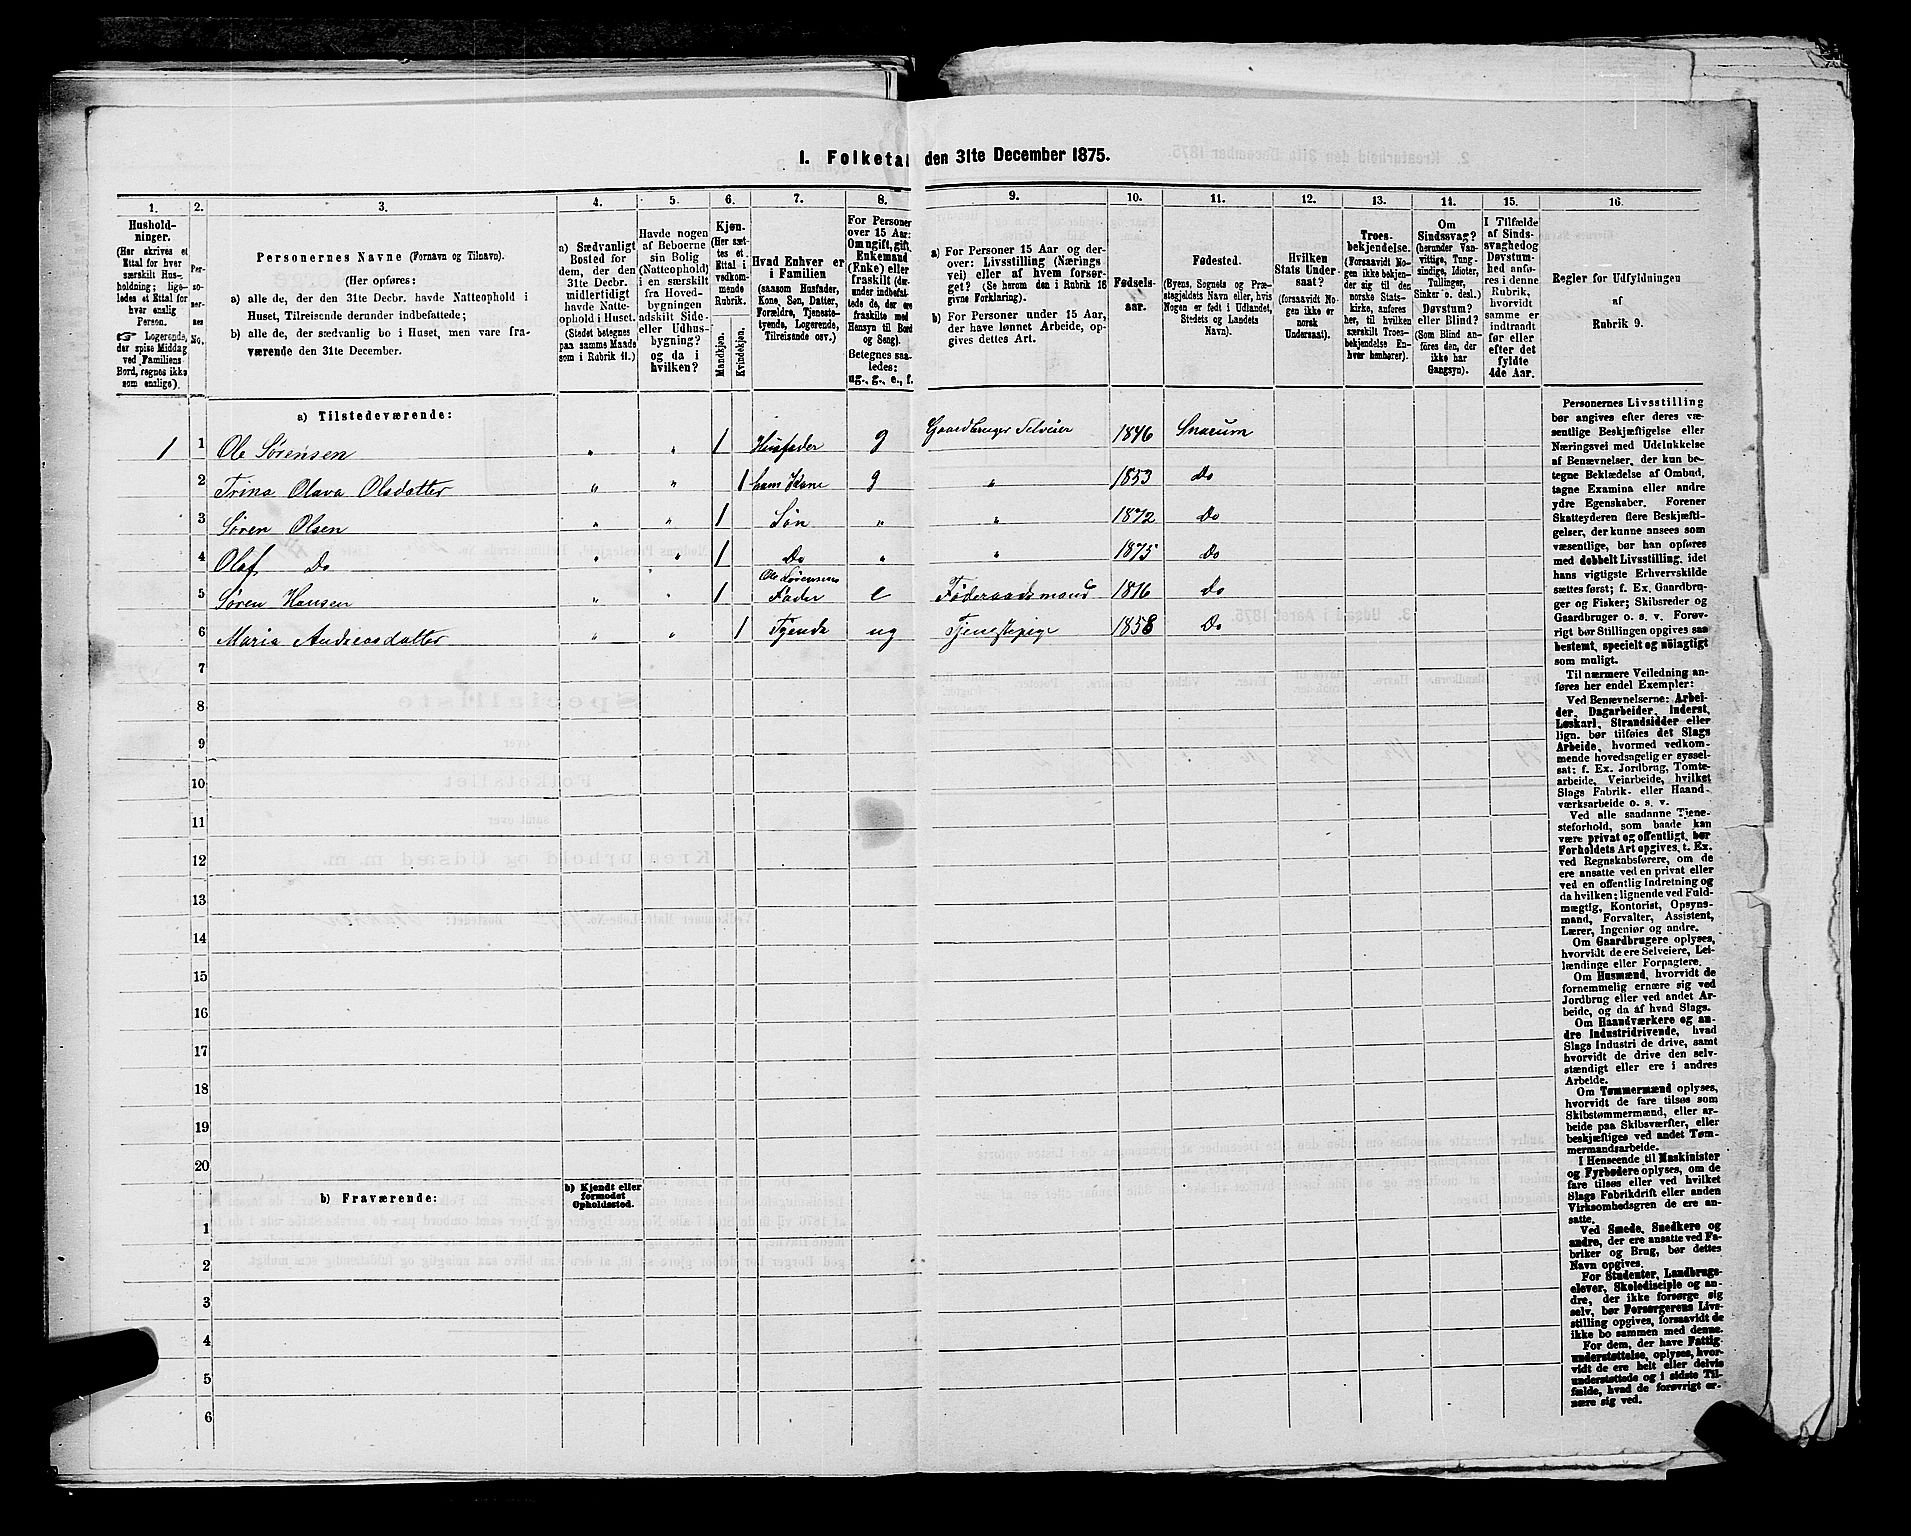 I. Folketal den 31te December 1875.
1. 2. 3. 4. 5. 6. 7. 8. 9. 10. 11. 12. 13. 14. 15. 16.
Hushold-
ninger.
(Her skrives et
Ettal for hver
særskilt Hus-
holdning; lige-
ledes et Ettal for
hver enslig
Person.
☞ Logerende,
der spise Middag
ved Familiens
Bord, regnes ikke
som enslige).
Per-
so-
ner-
nes
No.
Personernes Navne (Fornavn og Tilnavn).
(Her opføres:
a) alle de, der den 31te Decbr. havde Natteophold i
Huset, Tilreisende derunder indbefattede;
b) alle de, der sædvanlig bo i Huset, men vare fra-
værende den 31te December.
a) Sædvanligt
Bosted for
dem, der den
31te Decbr.
midlertidigt
havde Natte-
ophold i Huset.
(Stedet betegnes
paa samme Maade
som i Rubrik 11.)
Havde nogen
af Beboerne
sin Bolig
(Natteophold)
i en særskilt
fra Hoved-
bygningen
adskilt Side-
eller Udhus-
bygning?
og da i
hvilken?
Kjøn.
(Her sæt-
tes et
Ettal i
vedkom-
mende
Rubrik.
Mandkjøn.
Kvindekjøn.
Hvad Enhver er
i Familien
(saasom Husfader,
Kone, Søn, Datter,
Forældre, Tjeneste-
tyende, Logerende,
Tilreisende osv.)
For Personer
over 15 Aar:
Om ugift, gift,
Enkemand
(Enke) eller
fraskilt (der-
under indbefat-
tede de, der ere
fraskilte med
Hensyn til Bord
og Seng).
Betegnes saa-
ledes:
ug., g., e., f.
a) For Personer 15 Aar og der-
over: Livsstilling (Nærings-
vei) eller af hvem forsør-
get? (Se herom den i Rubrik 16
givne Forklaring).
b) For Personer under 15 Aar,
der have lønnet Arbeide, op-
gives dettes Art.
Fødsels-
aar.
Fødested.
(Byens, Sognets og Præ-
stegjeldets Navn eller, hvis
Nogen er født i Udlandet,
Stedets og Landets
Navn).
Hvilken
Stats Under-
saat?
(forsaavidt No-
gen ikke er
norsk
Undersaat).
Troes-
bekjendelse.
(Forsaavidt No-
gen ikke bekjen-
der sig til den
norske Stats-
kirke, anføres
her, til hvilken
særskilt Troes-
bekjendelse En-
hver henhører).
Om
Sindssvag?
(herunder Van-
vittige, Tung-
sindige, Idioter,
Tullinger,
Sinker o. desl.)
Døvstum?
eller Blind?
(Som Blind an-
føres den, der
ikke har
Gangsyn).
I Tilfælde
af Sinds-
svaghed og
Døvstum-
hed anfø-
res i denne
Rubrik,
hvorvidt
samme er
indtraadt
før eller
efter det
fyldte
4de Aar.
Regler for Udfyldningen
af
Rubrik 9.
a) Tilstedeværende:
1 1 Ole Sørensen „ „ 1 Husfader g Gaardbruger Selveier 1846 Snarum
2 Trina Olava Olsdatter „ „ 1 hans Kone g „ 1853 Do
3 Søren Olsen „ „ 1 Søn „ „ 1872 Do
4 Olaf Do „ „ 1 Do „ „ 1875 Do
5 Søren Hansen „ „ 1 Ole Sørensens Fader e Føderaadsmand 1816 Do
6 Maria Andreasdatter „ „ 1 Tyende ug Tjenestepige 1858 Do
7
8
9
10
11
12
13
14
15
16
17
18
19
20
b) Fraværende:
b) Kjendt eller
formodet
Opholdssted.
1
2
3
4
5
6
Personernes Livsstilling
bør angives efter deres væ-
sentlige Beskjæftigelse eller
Næringsvei med Udelukkelse
af Benævnelser, der kun be-
tegne Beklædelse af Ombud,
tagne Examina eller andre
ydre Egenskaber. Forener
Skatteyderen flere Beskjæfti-
gelser, der kunne ansees som
væsentlige, bør han opføres
med dobbelt Livsstilling, idet
hans vigtigste Erhvervskilde
sættes først; f. Ex. Gaardbru-
ger og Fisker; Skibsreder og
Gaardbruger o. s. v. Forøv-
rigt bør Stillingen opgives saa
bestemt, specielt og nöiagtigt
som muligt.
Til nærmere Veiledning an-
føres her endel Exempler:
Ved Benævnelserne: Arbei-
der, Dagarbeider, Inderst,
Løskarl, Strandsidder eller
lign. bør tilføies det Slags
Arbeide, hvormed vedkom-
mende hovedsagelig er syssel-
sat; f. Ex. Jordbrug, Tomte-
arbeide, Veiarbeide, hvilket
Slags Fabrik- eller Haand-
værksarbeide o. s. v.
Ved alle saadanne Tjene-
steforhold, som baade kan
være privat og offentligt, bør
Forholdets Art opgives, t. Ex.
ved Regnskabsførere, om de
ere ansatte ved en privat eller
ved en offentlig Indretning og
da hvilken; lignende ved Fuld-
mægtig, Kontorist, Opsyns-
mand, Forvalter, Assistent,
Lærer, Ingeniør og andre.
Om Gaardbrugere oplyses,
hvorvidt de ere Selveiere, Lei-
lændinge eller Forpagtere.
Om Husmænd, hvorvidt de
fornemmelig ernære sig ved
Jordbrug eller ved andet Ar-
beide, og da af hvad Slags.
Om Haandværkere og an-
dre Industridrivende, hvad
Slags Industri de drive, samt
hvorvidt de drive den selv-
stændigt eller ere i andres
Arbeide.
Om Tømmermænd oplyses,
hvorvidt de fare tilsøs som
Skibstømmermænd, eller ar-
beide paa Skibsværfter, eller
beskjæftiges ved andet Tøm-
mermandsarbeide.
I Henseende til Maskinister
og Fyrbødere oplyses, om de
fare tilsøs eller ved hvilket
Slags Fabrikdrift eller anden
Virksomhedsgren de ere an-
satte.
Ved Smede, Snedkere og
andre, der ere ansatte ved Fa-
briker og Brug, bør dettes
Navn opgives.
For Studenter, Landbrugs-
elever, Skoledisciple og an-
dre, der ikke forsørge sig
selv, bør Forsørgerens Livs-
stilling opgives, forsaavidt de
ikke bo sammen med denne.
For dem, der have Fattig-
understøttelse, oplyses, hvor-
vidt de ere helt eller delvis
understøttede og i sidste Til-
fælde, hvad de forøvrigt er-
nære sig ved.